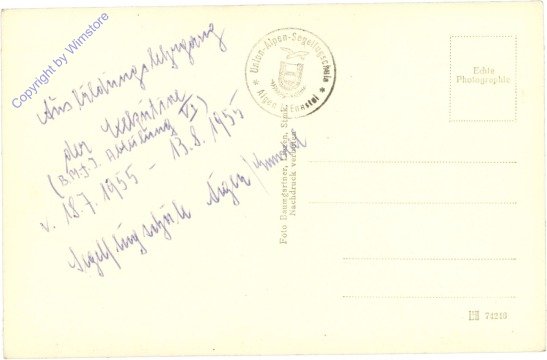 Copyright by Wimstore
Ausbildungslehrgang
der
Abteilung VI)
v. 18.7.1955 - 13.8.1955
Segelflugschule Aigen/Ennstal
Union-Alpen-Segelflugschule
Aigen i. Ennstal
Echte
Photographie
Foto Baumgartner, Liezen, Stmk.
Nachdruck verboten
74246